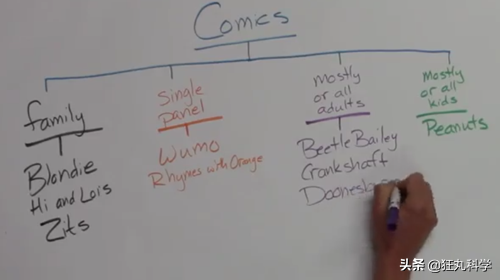 Comics
family
Blondie
Hi and Lois
Zits
Single
panel
Wumo
Rhymes with Orange
mostly
or all
adults
Beetle Bailey
Crankshaft
Mostly
or all
kids
Peanuts
头条 @狂丸科学